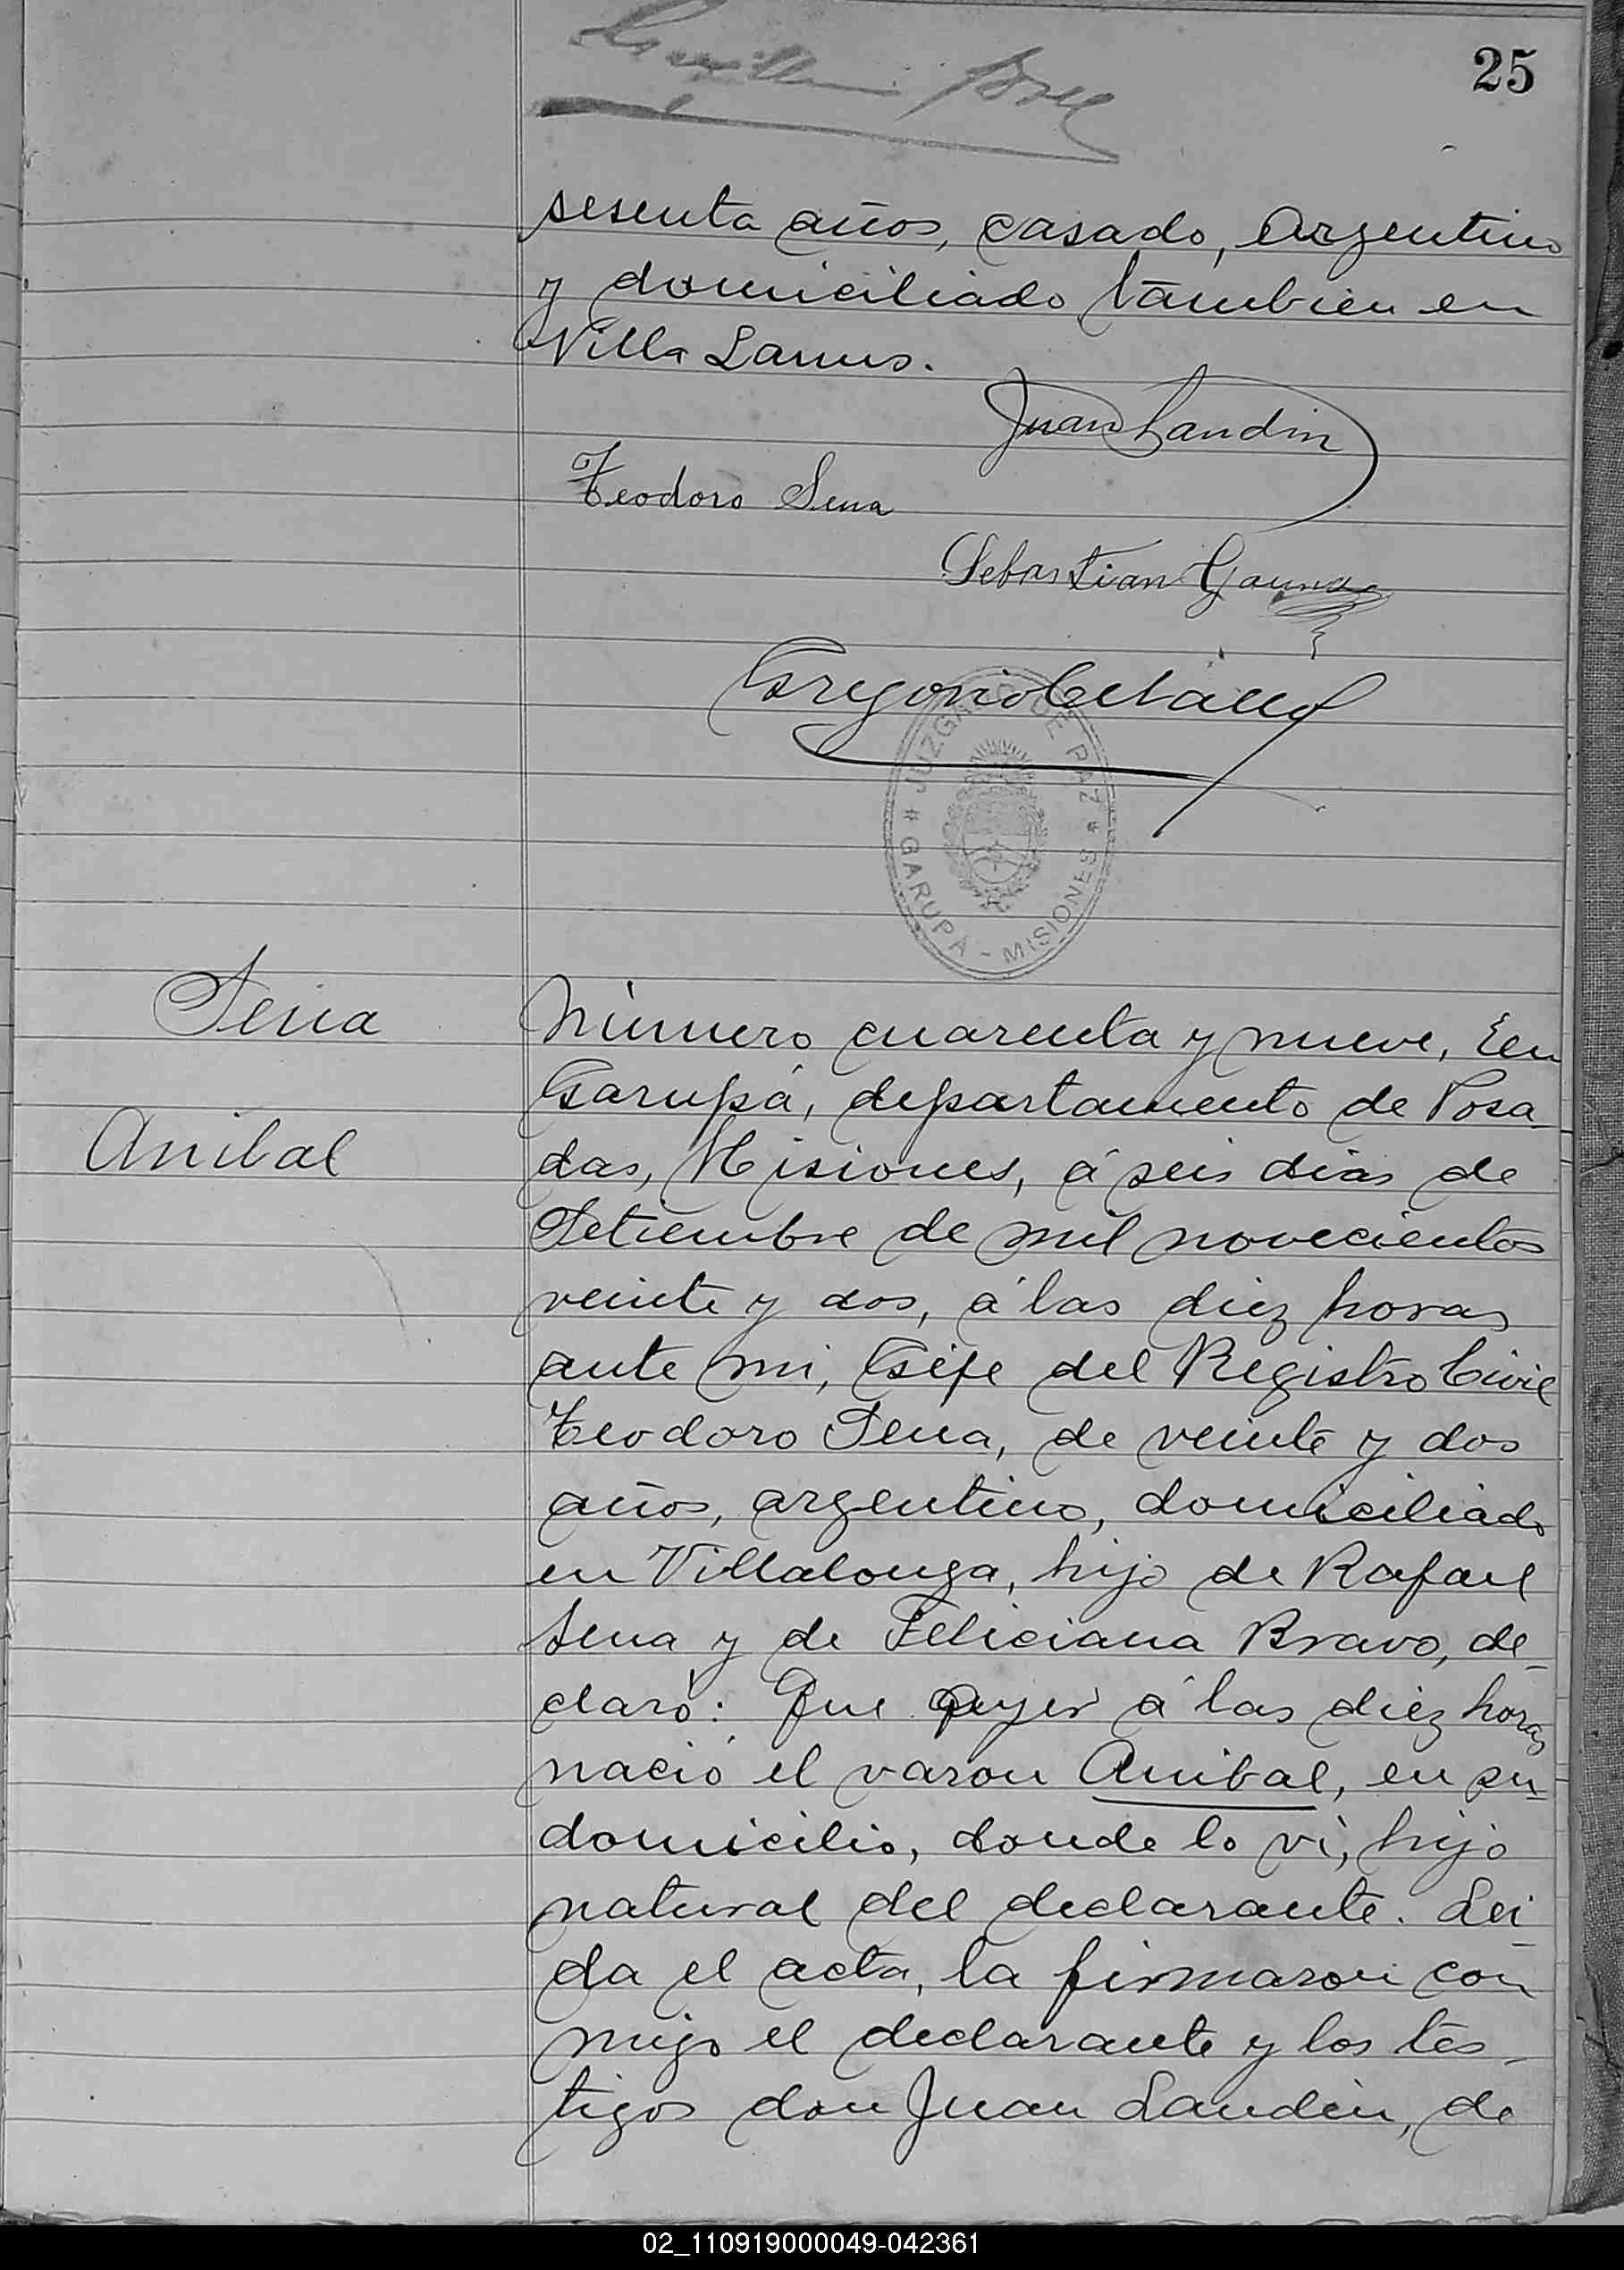 25
sesenta años, casado, Argentino
y domiciliado tambien en
Villa Lanus.
Juan Landin
Teodoro Sena
Sebastian Gauna
Gregorio
JUZGADO DE PAZ
# GARUPÁ - MISIONES #
Sena
Anibal
Número cuarenta y nueve, En
Garupá, departamento de Posa
das, Misiones, á seis dias de
Setiembre de mil novecientos
veinte y dos, á las diez horas
ante mi, Gefe del Registro Civil
Teodoro Sena, de veinte y dos
años, argentino, domiciliado
en Villalonga, hijo de Rafael
Sena y de Feliciana Bravo, de-
claró: Que ayer á las diez horas
nació el varon Anibal, en su
domicilio, donde lo ví, hijo
natural del declarante. Lei-
da el acta, la firmaron con
migo el declarante y los tes-
tigos don Juan Landin, de
02_110919000049-042361